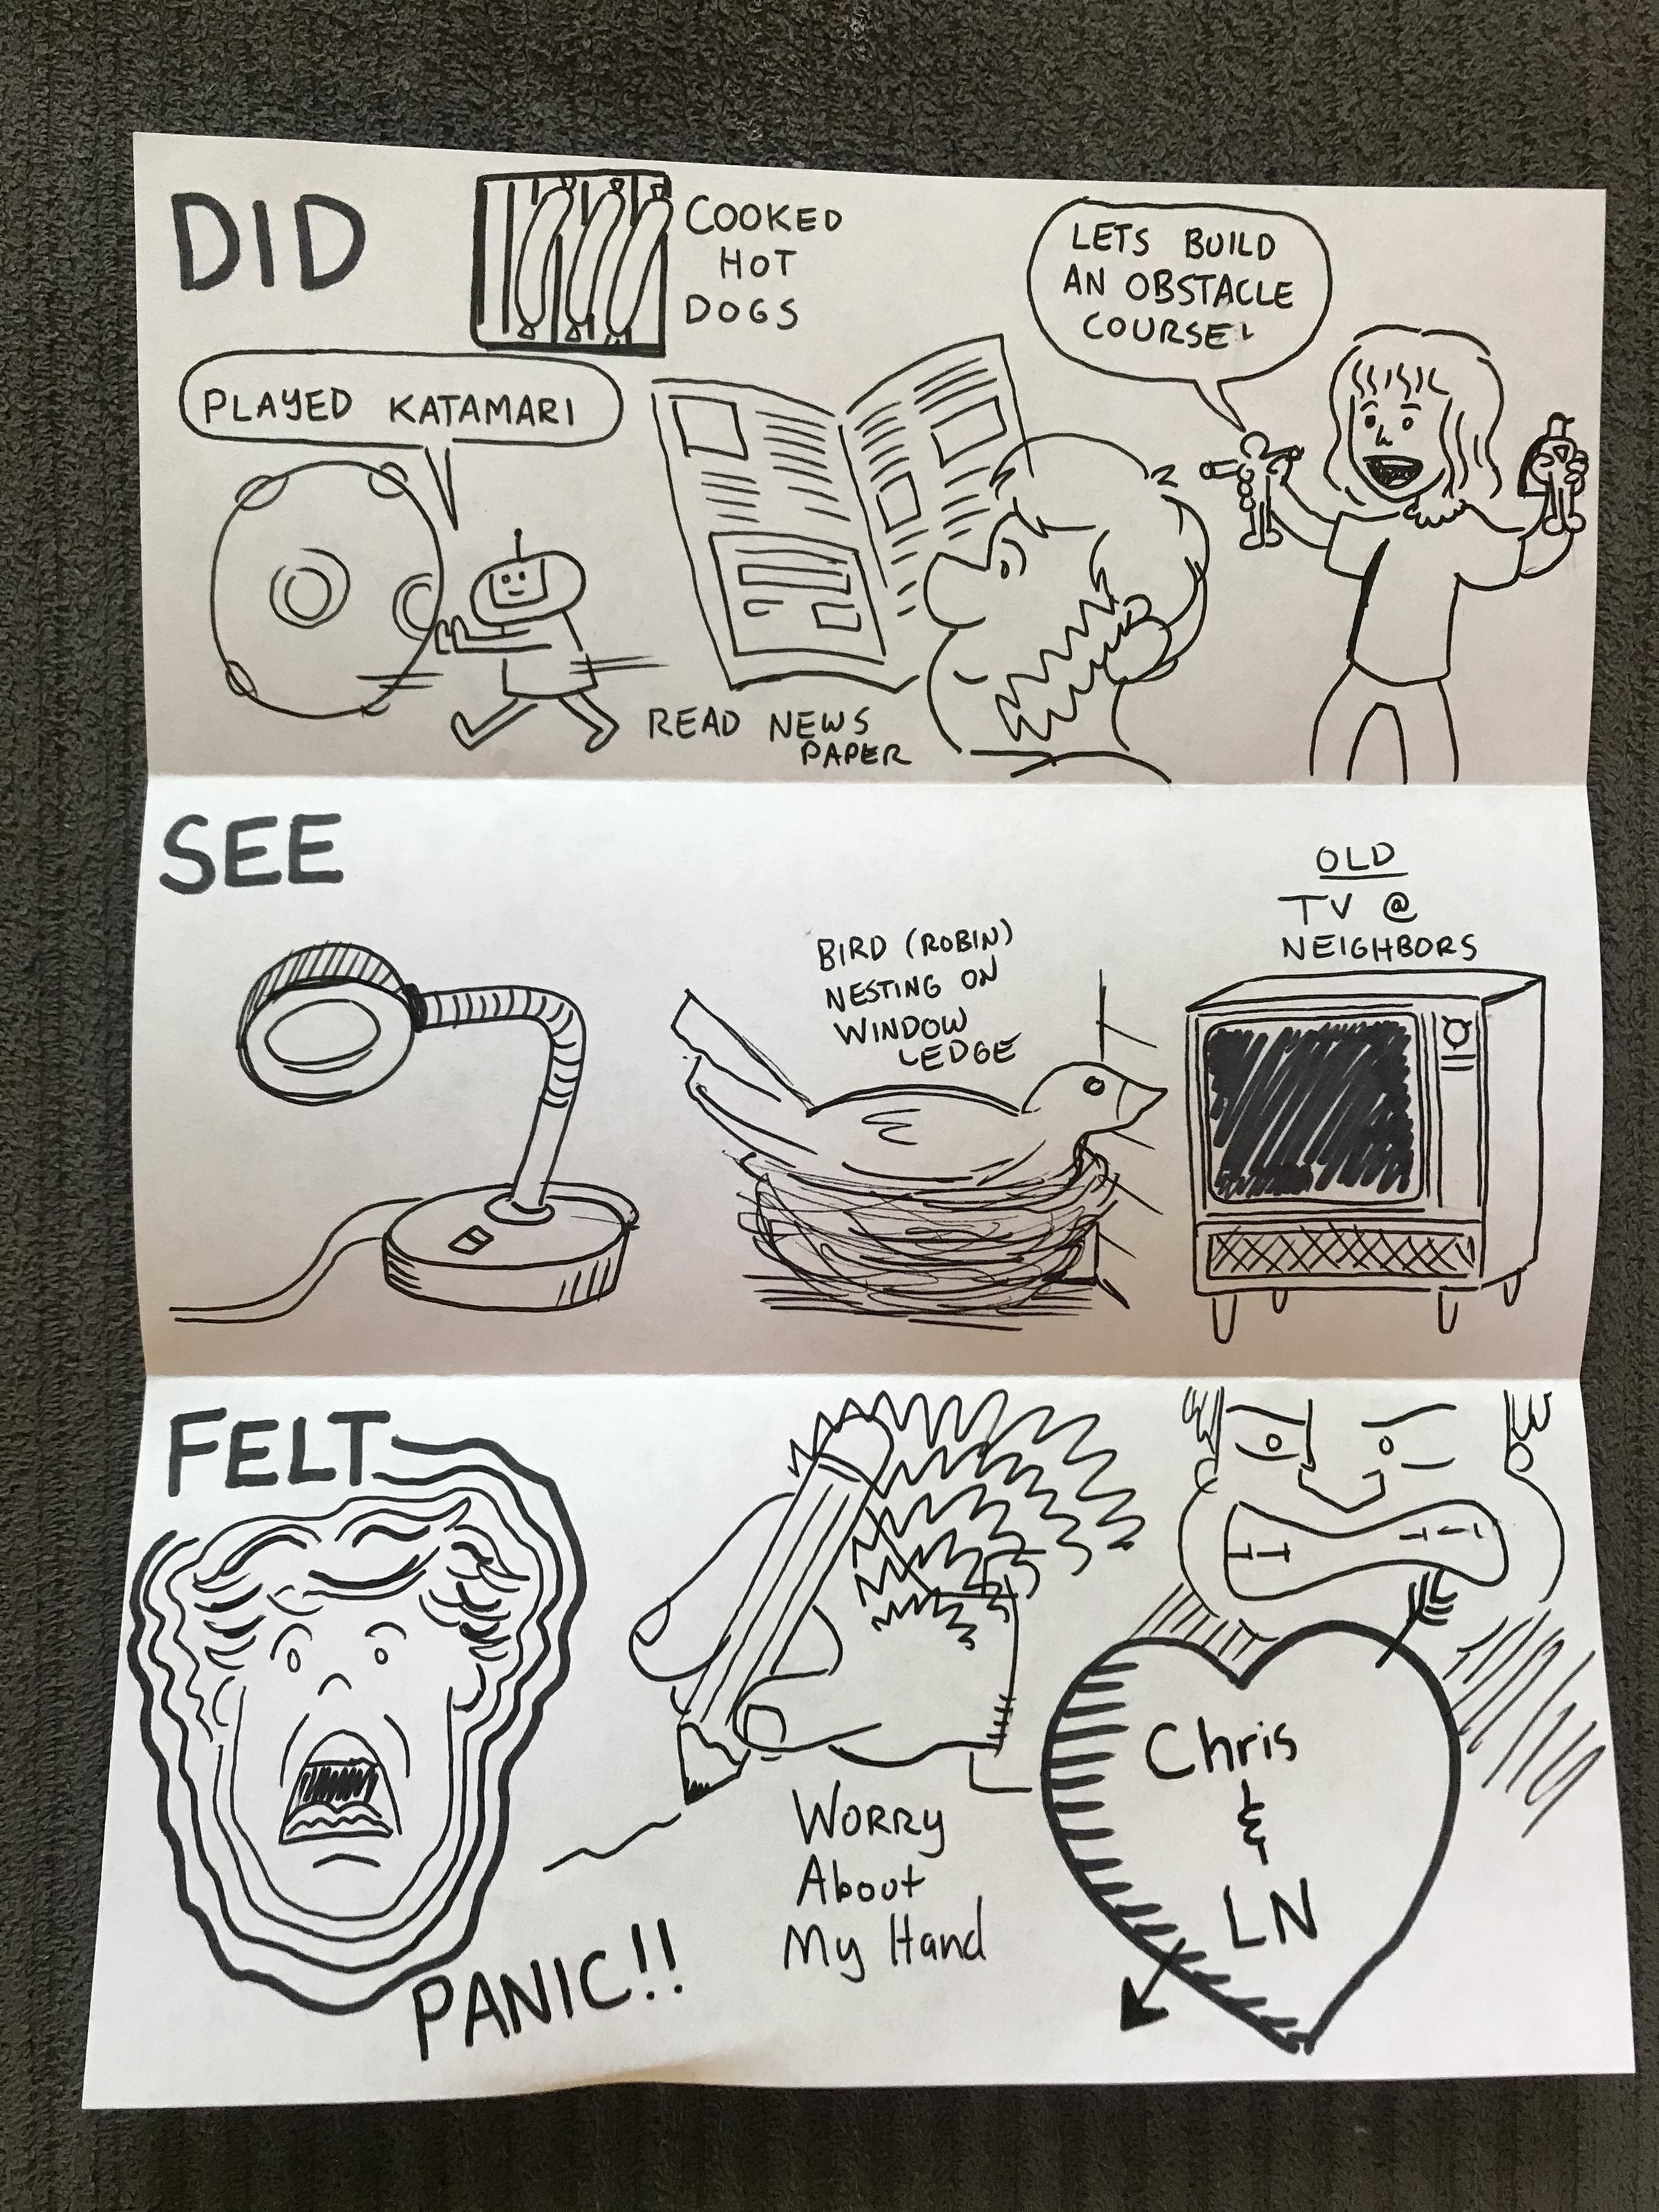 DID
COOKED
HOT
DOGS
LETS BUILD
AN OBSTACLE
COURSE!
PLAYED KATAMARI
READ NEWS
PAPER
SEE
BIRD (ROBIN)
NESTING ON
WINDOW
LEDGE
OLD
TV @
NEIGHBORS
FELT
PANIC!!
WORRY
About
My Hand
Chris
&
LN